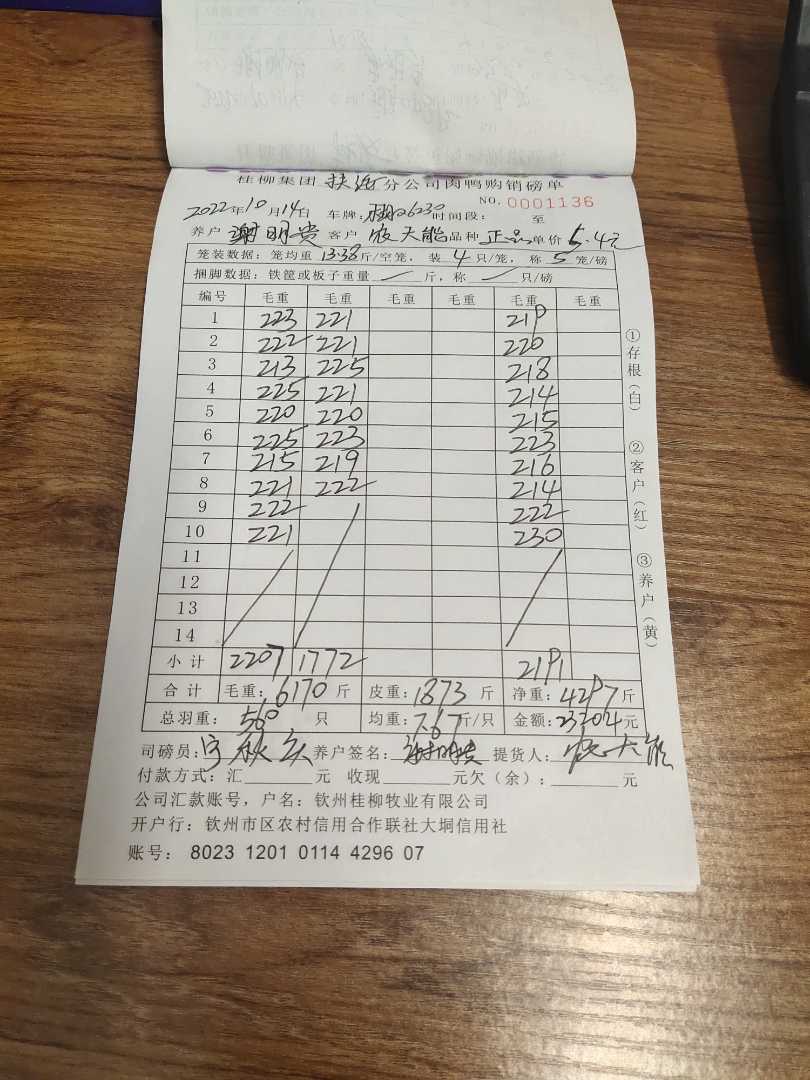 桂柳集团 扶绥 分公司肉鸭购销磅单
NO. 0001136
2022年10月14日 车牌: 26230 时间段: 至
养户 谢明贵 客户 农天能 品种 正品 单价 5.4元
笼装数据: 笼均重 13.38斤/空笼, 装 4 只/笼, 称 5 笼/磅
捆脚数据: 铁筐或板子重量 / 斤, 称 / 只/磅
编号 毛重 毛重 毛重 毛重 毛重 毛重
1 223 221 219
2 222 221 220
3 213 225 218
4 225 221 214
5 220 220 215
6 225 223 223
7 215 219 216
8 221 222 214
9 222 222
10 221 230
11
12
13
14
小计 2207 1772 2191
合计 毛重: 6170 斤 皮重: 1873 斤 净重: 4297 斤
总羽重: 560 只 均重: 7.67斤/只 金额: 23204元
司磅员: 养户签名: 谢明贵 提货人: 农天能
付款方式: 汇______元 收现______元欠(余): ______元
公司汇款账号, 户名: 钦州桂柳牧业有限公司
开户行: 钦州市区农村信用合作联社大垌信用社
账号: 8023 1201 0114 4296 07
①存根(白)
②客户(红)
③养户(黄)